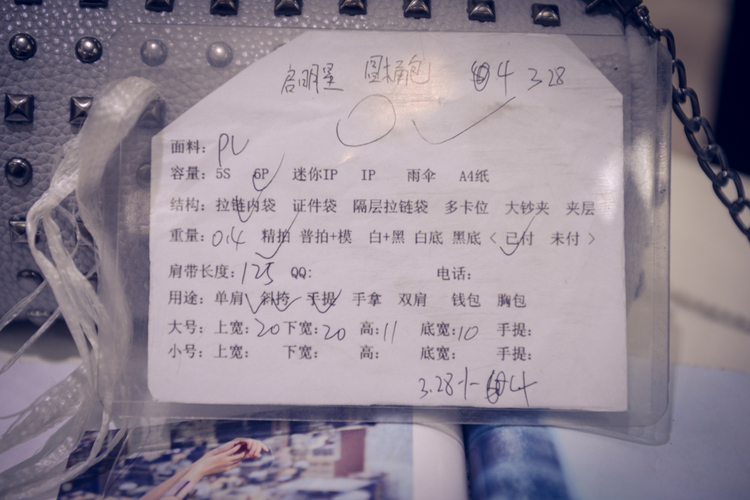 启明星 圆桶包 4 3.28
面料: PU
容量: 5S 6P 迷你IP IP 雨伞 A4纸
结构: 拉链内袋 证件袋 隔层拉链袋 多卡位 大钞夹 夹层
重量: 0.4 精拍 普拍+模 白+黑 白底 黑底 < 已付 未付 >
肩带长度: 125 QQ: 电话:
用途: 单肩 斜挎 手提 手拿 双肩 钱包 胸包
大号: 上宽: 20 下宽: 20 高: 11 底宽: 10 手提:
小号: 上宽: 下宽: 高: 底宽: 手提:
3.28 4